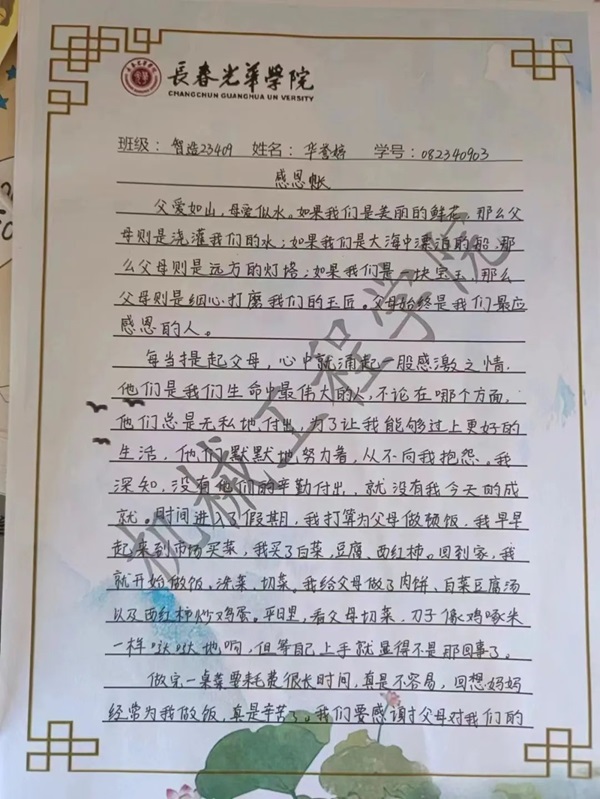 長春光華學院
CHANGCHUN GUANGHUA UN VERSITY
班级：智造23409 姓名：华誉婷 学号：082340903
感恩账
父爱如山，母爱似水。如果我们是美丽的鲜花，那么父
母则是浇灌我们的水；如果我们是大海中漂泊的船，那
么父母则是远方的灯塔；如果我们是一块宝玉，那么
父母则是细心打磨我们的玉匠。父母始终是我们最应
感恩的人。
每当提起父母，心中就涌起一股感激之情.
他们是我们生命中最伟大的人，不论在哪个方面，
他们总是无私地付出，为了让我能够过上更好的
生活，他们默默地努力着，从不向我抱怨。我
深知，没有他们的辛勤付出，就没有我今天的成
就。时间进入了假期，我打算为父母做顿饭，我早早
起来到市场买菜，我买了白菜，豆腐，西红柿。回到家，我
就开始做饭。洗菜，切菜。我给父母做了肉饼，白菜豆腐汤
以及西红柿炒鸡蛋。平日里，看父母切菜，刀子像鸡啄米
一样哒哒地响，但等自己上手就显得不是那回事了。
做完一桌菜要耗费很长时间，真是不容易，回想妈妈
经常为我做饭，真是辛苦了。我们要感谢父母对我们的
机械工程学院